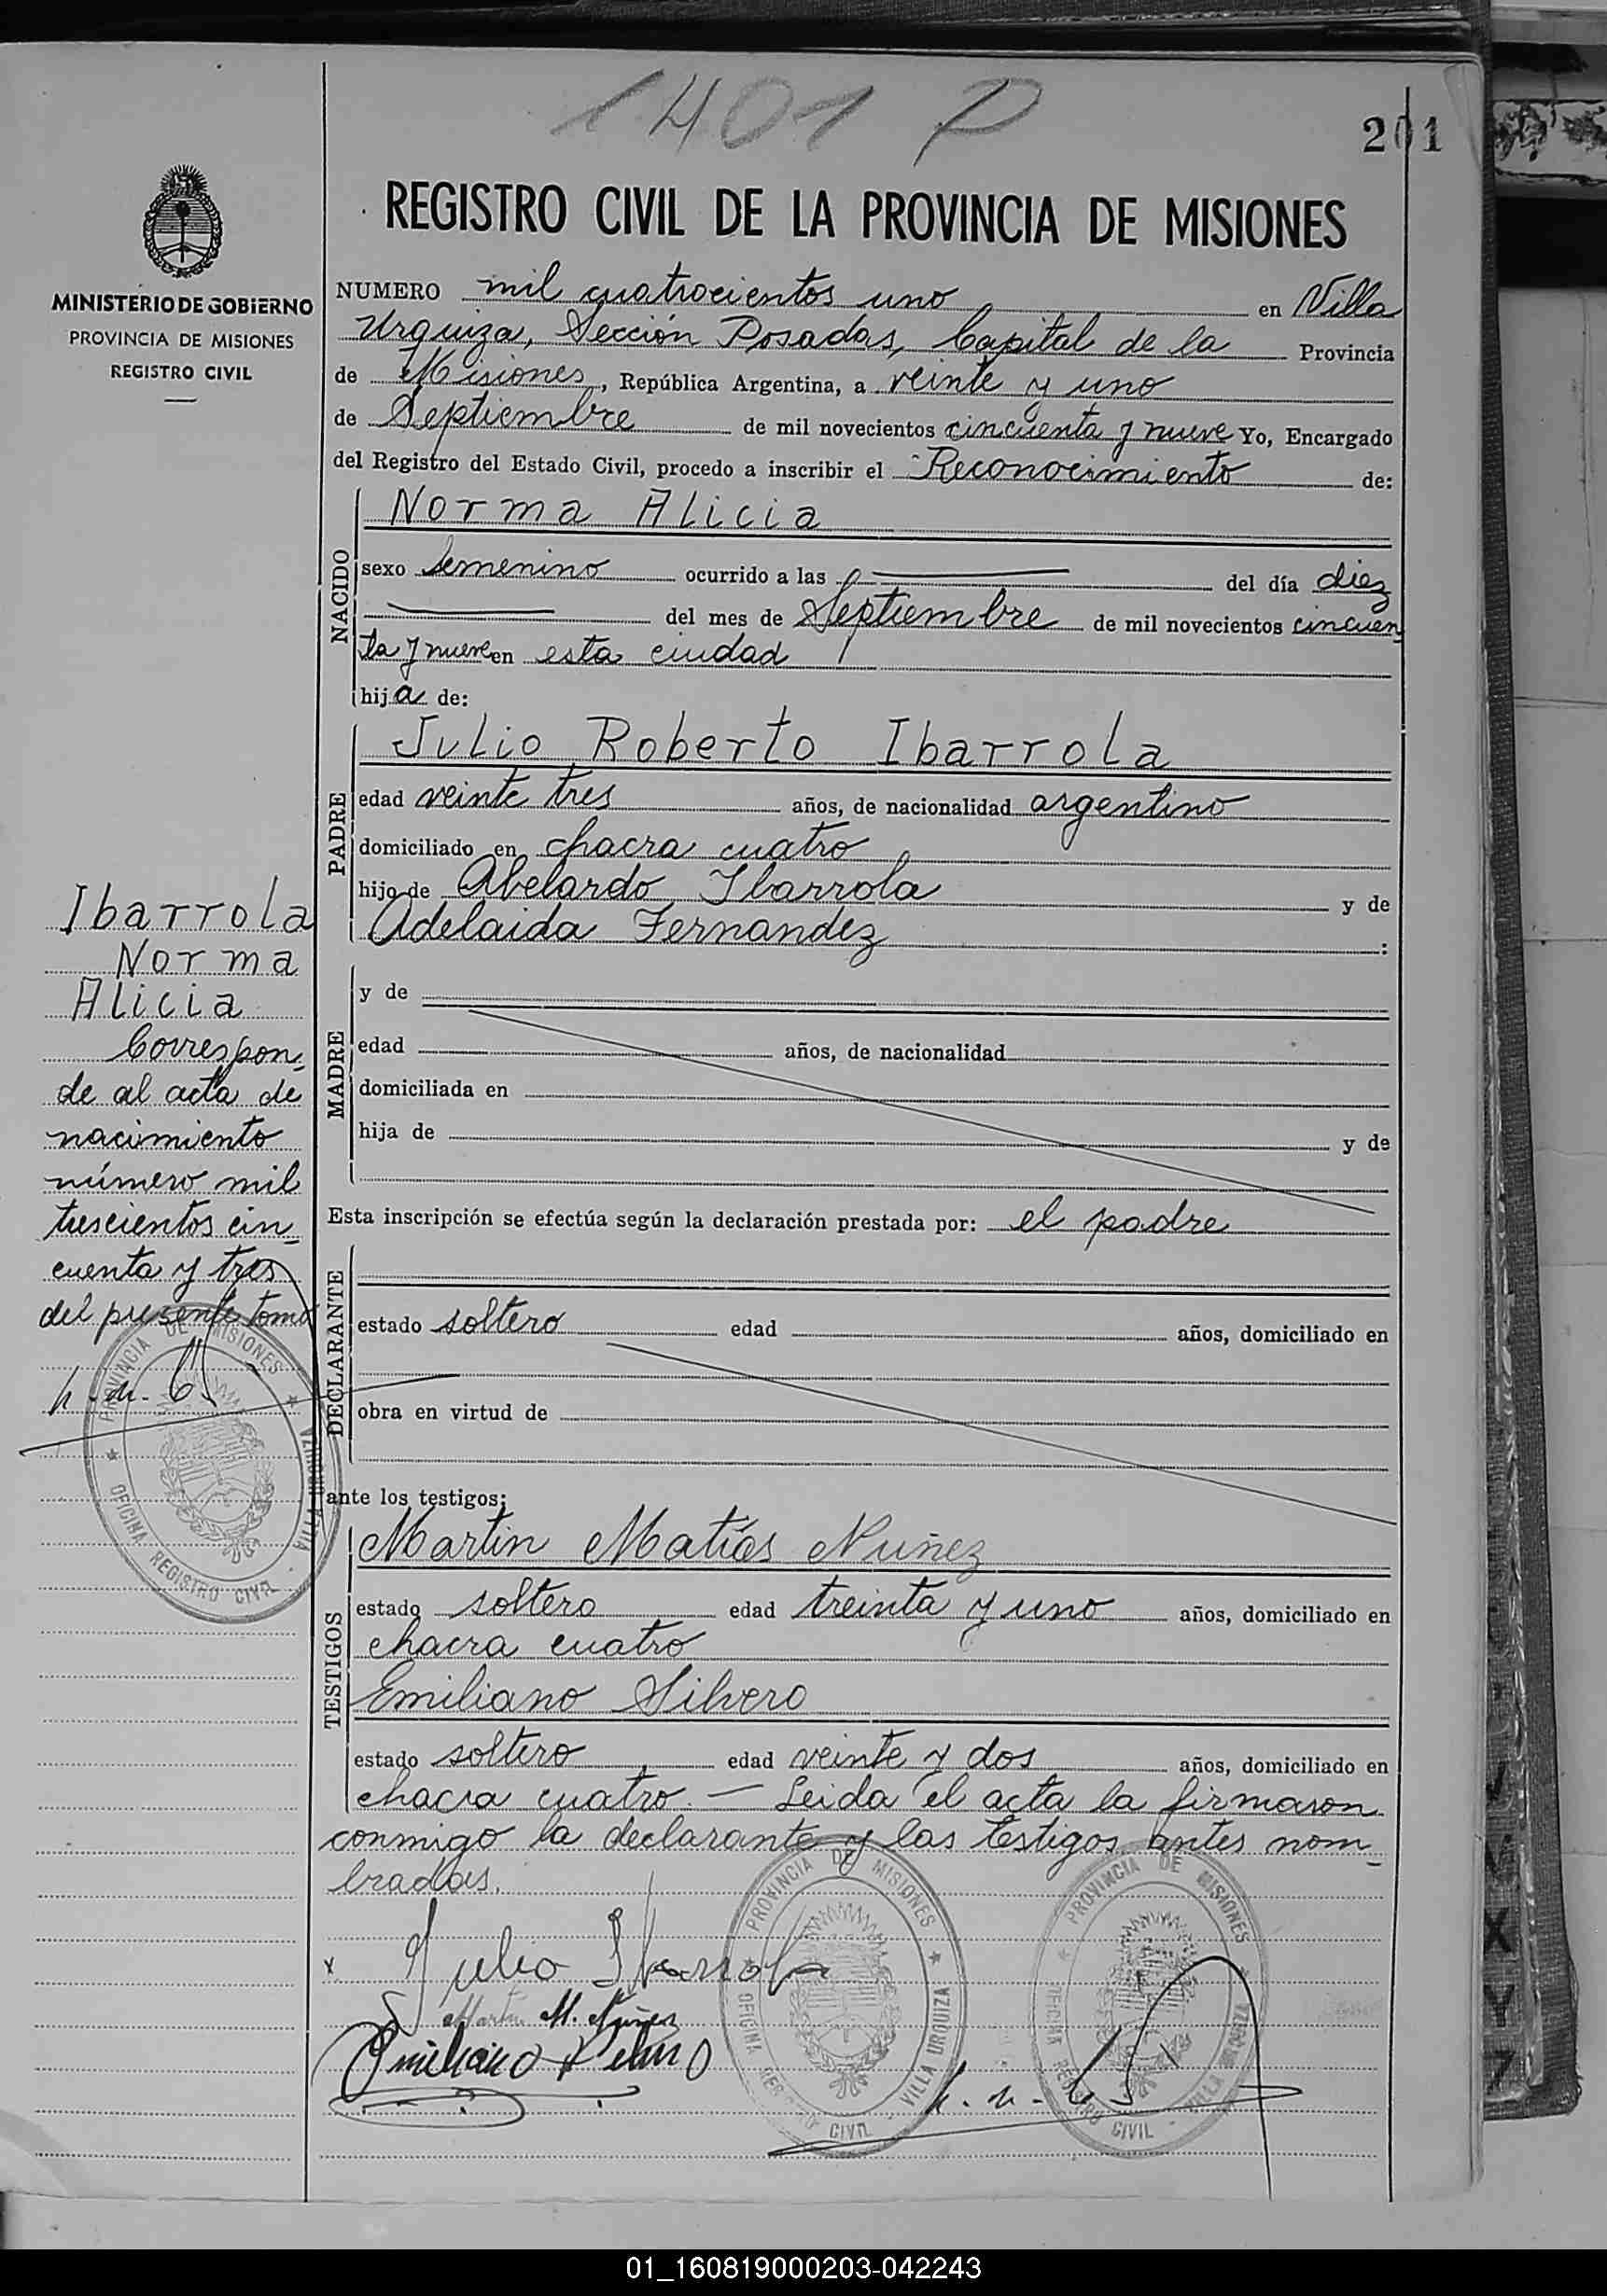 1401 P
201
REGISTRO CIVIL DE LA PROVINCIA DE MISIONES
MINISTERIO DE GOBIERNO
PROVINCIA DE MISIONES
REGISTRO CIVIL
NUMERO mil cuatrocientos uno en Villa
Urquiza, Sección Posadas, Capital de la Provincia
de Misiones, República Argentina, a veinte y uno
de Septiembre de mil novecientos cincuenta y nueve Yo, Encargado
del Registro del Estado Civil, procedo a inscribir el Reconocimiento de:
NACIDO
Norma Alicia
sexo femenino ocurrido a las del día diez
del mes de Septiembre de mil novecientos cincuen
ta y nueve en esta ciudad
hija de:
PADRE
Julio Roberto Ibarrola
edad veinte tres años, de nacionalidad argentino
domiciliado en chacra cuatro
hijo de Abelardo Ibarrola y de
Adelaida Fernandez :
MADRE
y de
edad años, de nacionalidad
domiciliada en
hija de y de
Esta inscripción se efectúa según la declaración prestada por: el padre
DECLARANTE
estado soltero edad años, domiciliado en
obra en virtud de
ante los testigos:
TESTIGOS
Martin Matías Nuñez
estado soltero edad treinta y uno años, domiciliado en
chacra cuatro
Emiliano Silvero
estado soltero edad veinte y dos años, domiciliado en
chacra cuatro. — Leida el acta la firmaron
conmigo la declarante y las testigos antes nom_
bradas.
x Julio Ibarrola
Martin M. Nuñez
Emiliano Silvero
Ibarrola
Norma
Alicia
Correspon_
de al acta de
nacimiento
número mil
trescientos cin_
cuenta y tres
del presente tomo
PROVINCIA DE MISIONES
OFICINA REGISTRO CIVIL - VILLA URQUIZA
PROVINCIA DE MISIONES
OFICINA REGISTRO CIVIL - VILLA URQUIZA
PROVINCIA DE MISIONES
OFICINA REGISTRO CIVIL - VILLA URQUIZA
X
Y
Z
01_160819000203-042243